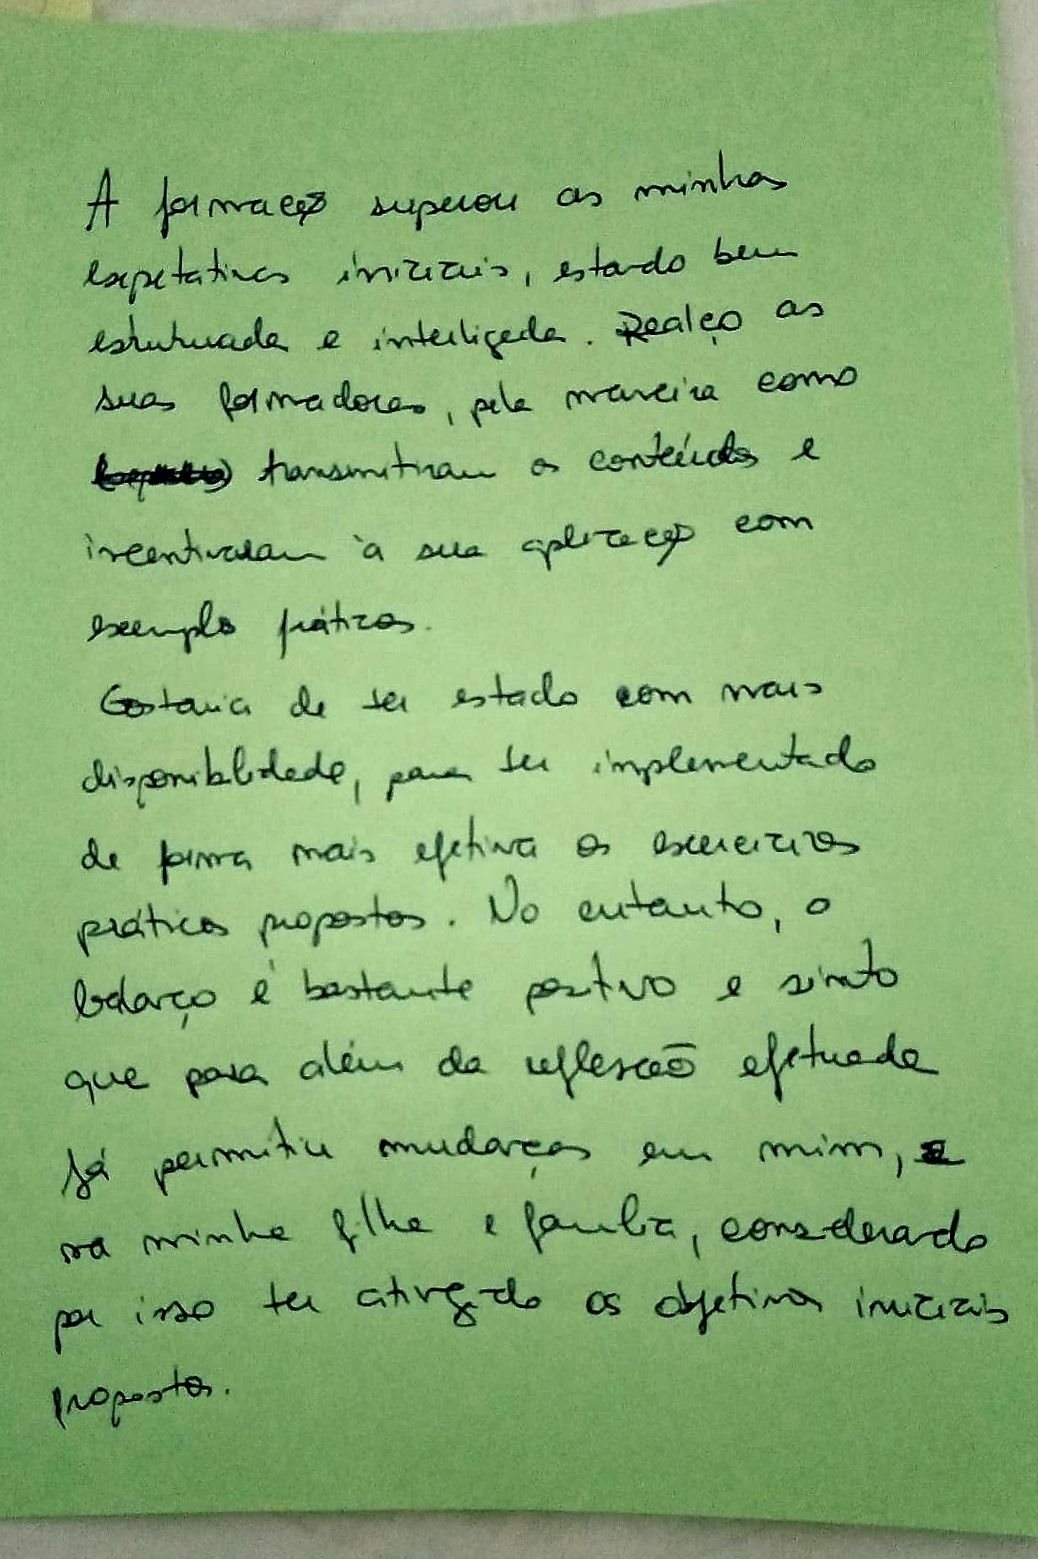 A formação superou as minhas
expetativas iniciais, estando bem
estruturada e interligada. Realço as
suas formadoras, pela maneira como
transmitiram os conteúdos e
incentivaram à sua aplicação com
exemplos práticos.
Gostaria de ter estado com mais
disponibilidade, para ter implementado
de forma mais efetiva os exercicios
práticos propostos. No entanto, o
balanço é bastante positivo e sinto
que para além da reflexão efetuada
já permitiu mudanças em mim,
na minha filha e família, considerando
por isso ter atingido os objetivos iniciais
propostos.